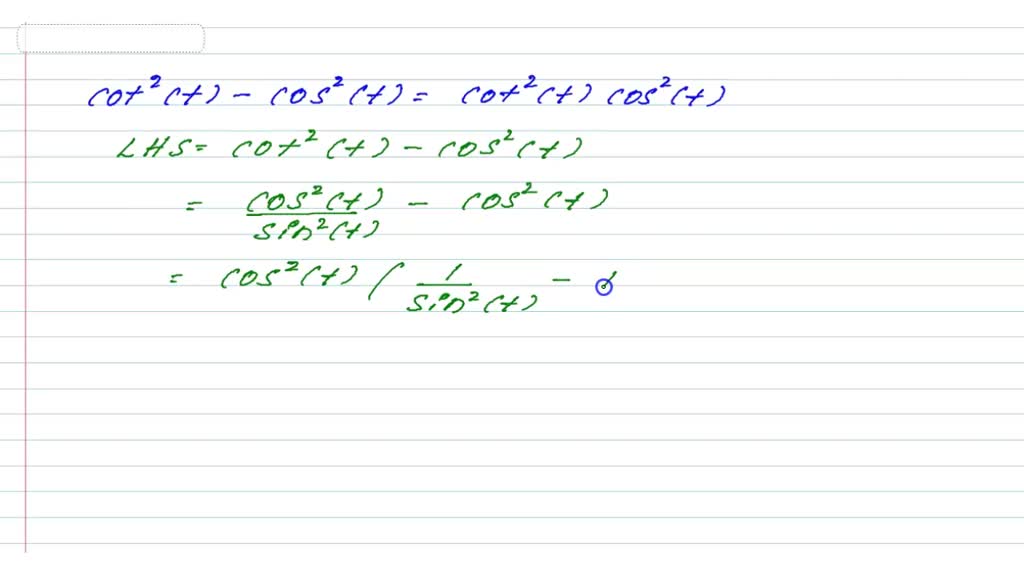 cot²(t) - cos²(t) = cot²(t) cos²(t)
LHS = cot²(t) - cos²(t)
= cos²(t)/sin²(t) - cos²(t)
= cos²(t) ( 1/sin²(t) - 1